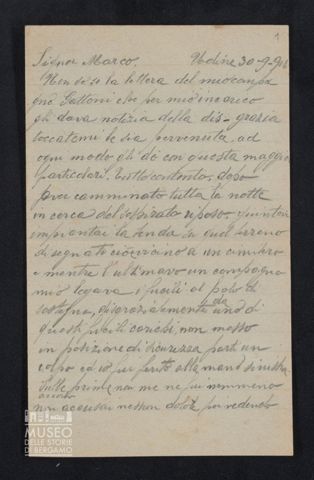 1
Signor Marco, Udine 30-9-916
Non so se la lettera del mio compa
gno Gattoni che per mio incarico
gli dava notizia della dis-grazia
toccatemi le sia pervenuta, ad
ogni modo gli do con questa maggiori
particolari.
poi camminato tutta la notte
in cerca del sospirato riposo
impiantai la tenda su quel terreno
cioè vicino a un cimitero
e mentre l'ultimavo un compagno
mio legava i fucili al palo di
sostegno, disgraziatamente da uno di
questi fucili carichi, non messo
in posizione di sicurezza partì un
colpo ed io fui ferito alla mano sinistra
Sulle prime non me ne nemmeno
accorto
non accusai nessun dolore, poi vedendo
MUSEO
DELLE STORIE
DI BERGAMO